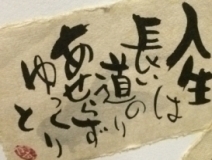 人生は
長い
道のり
あせらず
ゆっくり
と